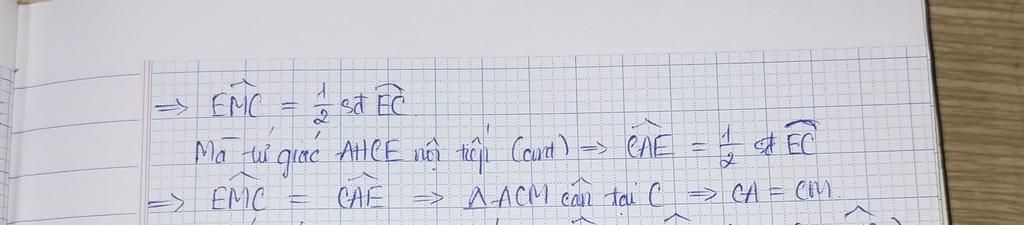 ⇒ \widehat{EMC} = \frac{1}{2} sđ \overparen{EC}.
Mà tứ giác AHCE nội tiếp (cmt) ⇒ \widehat{CAE} = \frac{1}{2} sđ \overparen{EC}
⇒ \widehat{EMC} = \widehat{CAE} ⇒ Δ ACM cân tại C ⇒ CA = CM.